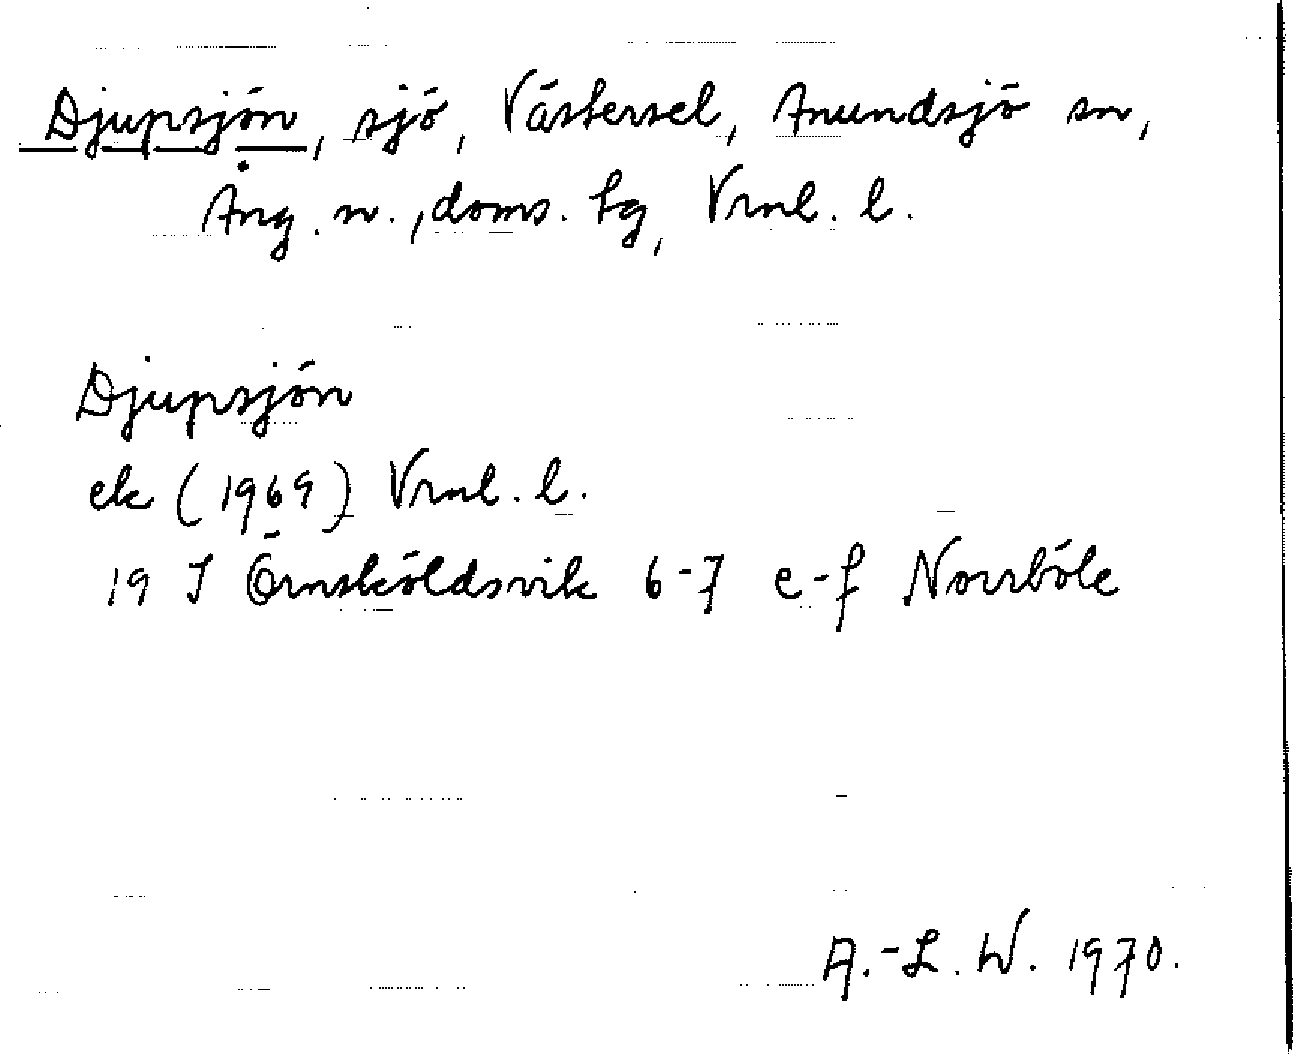 Djupsjön, sjö, Västersel, Anundsjö sn,
Ång. n., doms. tg, Vrnl. l.
Djupsjön
ek (1969) Vrnl. l.
19 J Örnsköldsvik 6-7 e-f Norrböle
A.-L. W. 1970.